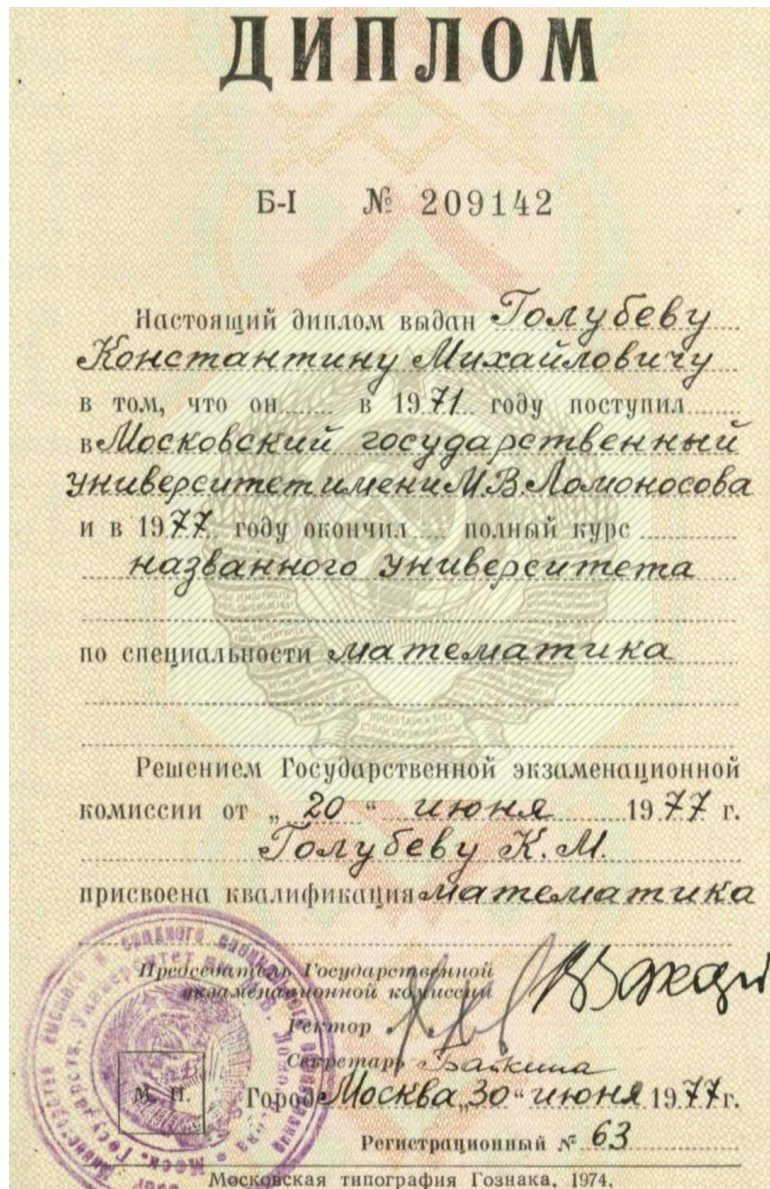 ДИПЛОМ
Б-I № 209142
Настоящий диплом выдан Голубеву
Константину Михайловичу
в том, что он в 1971 году поступил
в Московский государственный
университет имени М.В. Ломоносова
и в 1977 году окончил полный курс
названного университета
по специальности математика
ПРОЛЕТАРИИ ВСЕХ
СТРАН, СОЕДИНЯЙТЕСЬ!
Решением Государственной экзаменационной
комиссии от „20“ июня 1977 г.
Голубеву К. М.
присвоена квалификация математика
Председатель Государственной
экзаменационной комиссии
Ректор
Секретарь
М. П.
Город Москва „30“ июня 1977 г.
Регистрационный № 63
Московская типография Гознака. 1974.